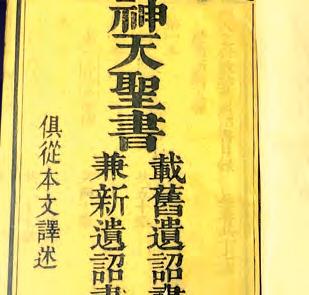 神天聖書
載舊遺詔書
兼新遺詔書
俱從本文譯述